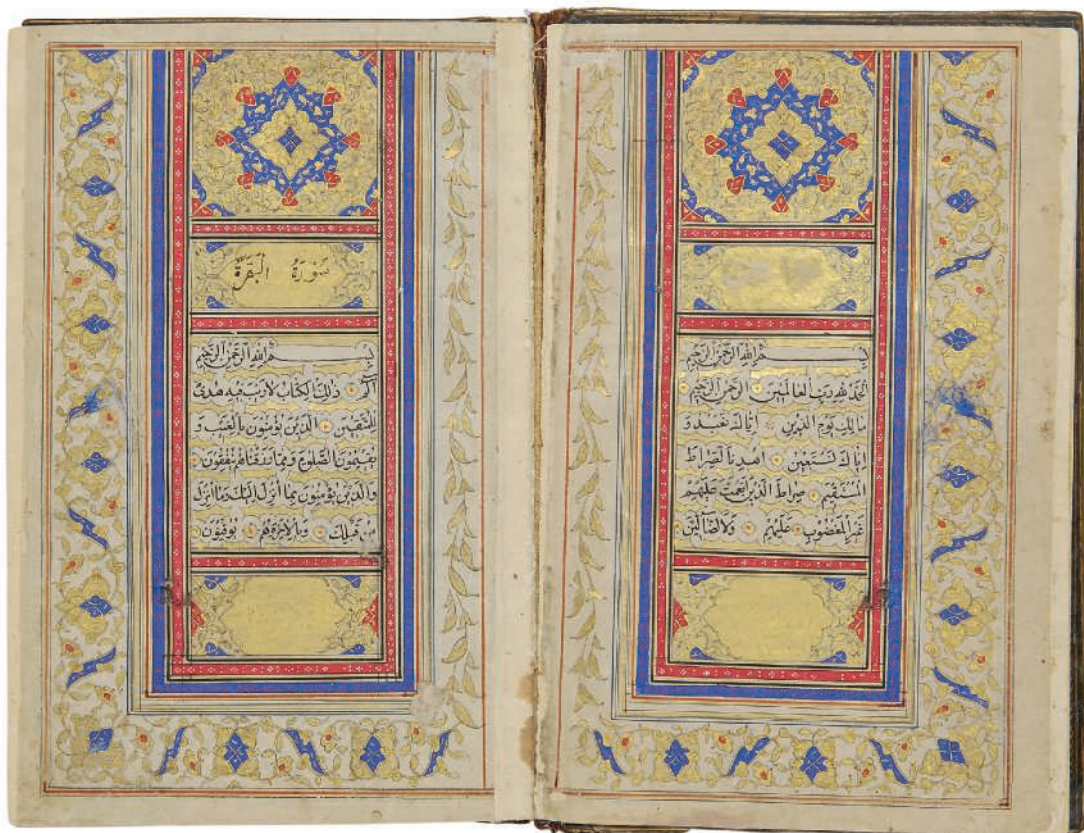 بِسْمِ اللهِ الرَّحْمٰنِ الرَّحِيمِ
اَلْحَمْدُ لِلّٰهِ رَبِّ الْعَالَمِينَ الرَّحْمٰنِ الرَّحِيمِ
مَالِكِ يَوْمِ الدِّينِ اِيَّاكَ نَعْبُدُ وَ
اِيَّاكَ نَسْتَعِينُ اِهْدِنَا الصِّرَاطَ
الْمُسْتَقِيمَ صِرَاطَ الَّذِينَ اَنْعَمْتَ عَلَيْهِمْ
غَيْرِ الْمَغْضُوبِ عَلَيْهِمْ وَلَا الضَّالِّينَ
سُورَةُ الْبَقَرَةِ
بِسْمِ اللهِ الرَّحْمٰنِ الرَّحِيمِ
الٓمٓ ذٰلِكَ الْكِتَابُ لَا رَيْبَ فِيهِ هُدًى
لِلْمُتَّقِينَ الَّذِينَ يُؤْمِنُونَ بِالْغَيْبِ وَ
يُقِيمُونَ الصَّلٰوةَ وَمِمَّا رَزَقْنَاهُمْ يُنْفِقُونَ
وَالَّذِينَ يُؤْمِنُونَ بِمَا اُنْزِلَ اِلَيْكَ وَمَا اُنْزِلَ
مِنْ قَبْلِكَ وَبِالْاٰخِرَةِ هُمْ يُوقِنُونَ